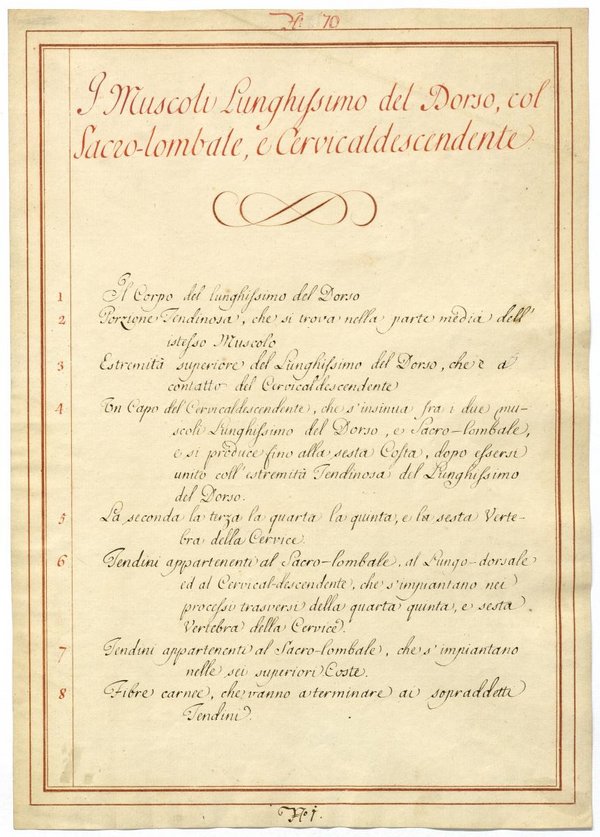 N.º 70
I Muscoli Lunghissimo del Dorso, col
Sacro-lombale, e Cervicaldescendente
1 Il Corpo del lunghissimo del Dorso
2 Porzione Tendinosa, che si trova nella parte media dell'
istesso Muscolo
3 Estremità superiore del Lunghissimo del Dorso, che è a
contatto del Cervicaldescendente
4 Un Capo del Cervicaldescendente, che s'insinua fra i due mu-
scoli Lunghissimo del Dorso, e Sacro-lombale,
e si produce fino alla sesta Costa, dopo essersi
unito coll'estremità Tendinosa del Lunghissimo
del Dorso.
5 La seconda la terza la quarta la quinta, e la sesta Verte-
bra della Cervice.
6 Tendini appartenenti al Sacro-lombale, al Lungo-dorsale
ed al Cervical-descendente, che s'impiantano nei
processi trasversi della quarta quinta, e sesta
Vertebra della Cervice.
7 Tendini appartenenti al Sacro-lombale, che s'impiantano
nelle sei superiori Coste.
8 Fibre carnee, che vanno a terminare ai sopraddetti
Tendini.
Nº 1.